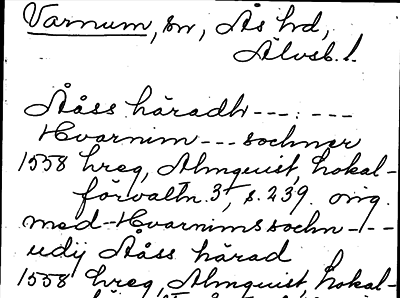 Varnum, sn, Ås hd,
Älvsb. l.
Ååss häradh---.---
Hvarnim---sochner
1558 hreg, Almquist, Lokal-
förvaltn. 3, s. 239. orig.
med Hvarnims sochn---
udij Ååss härad
1558 hreg, Almquist, Lokal-